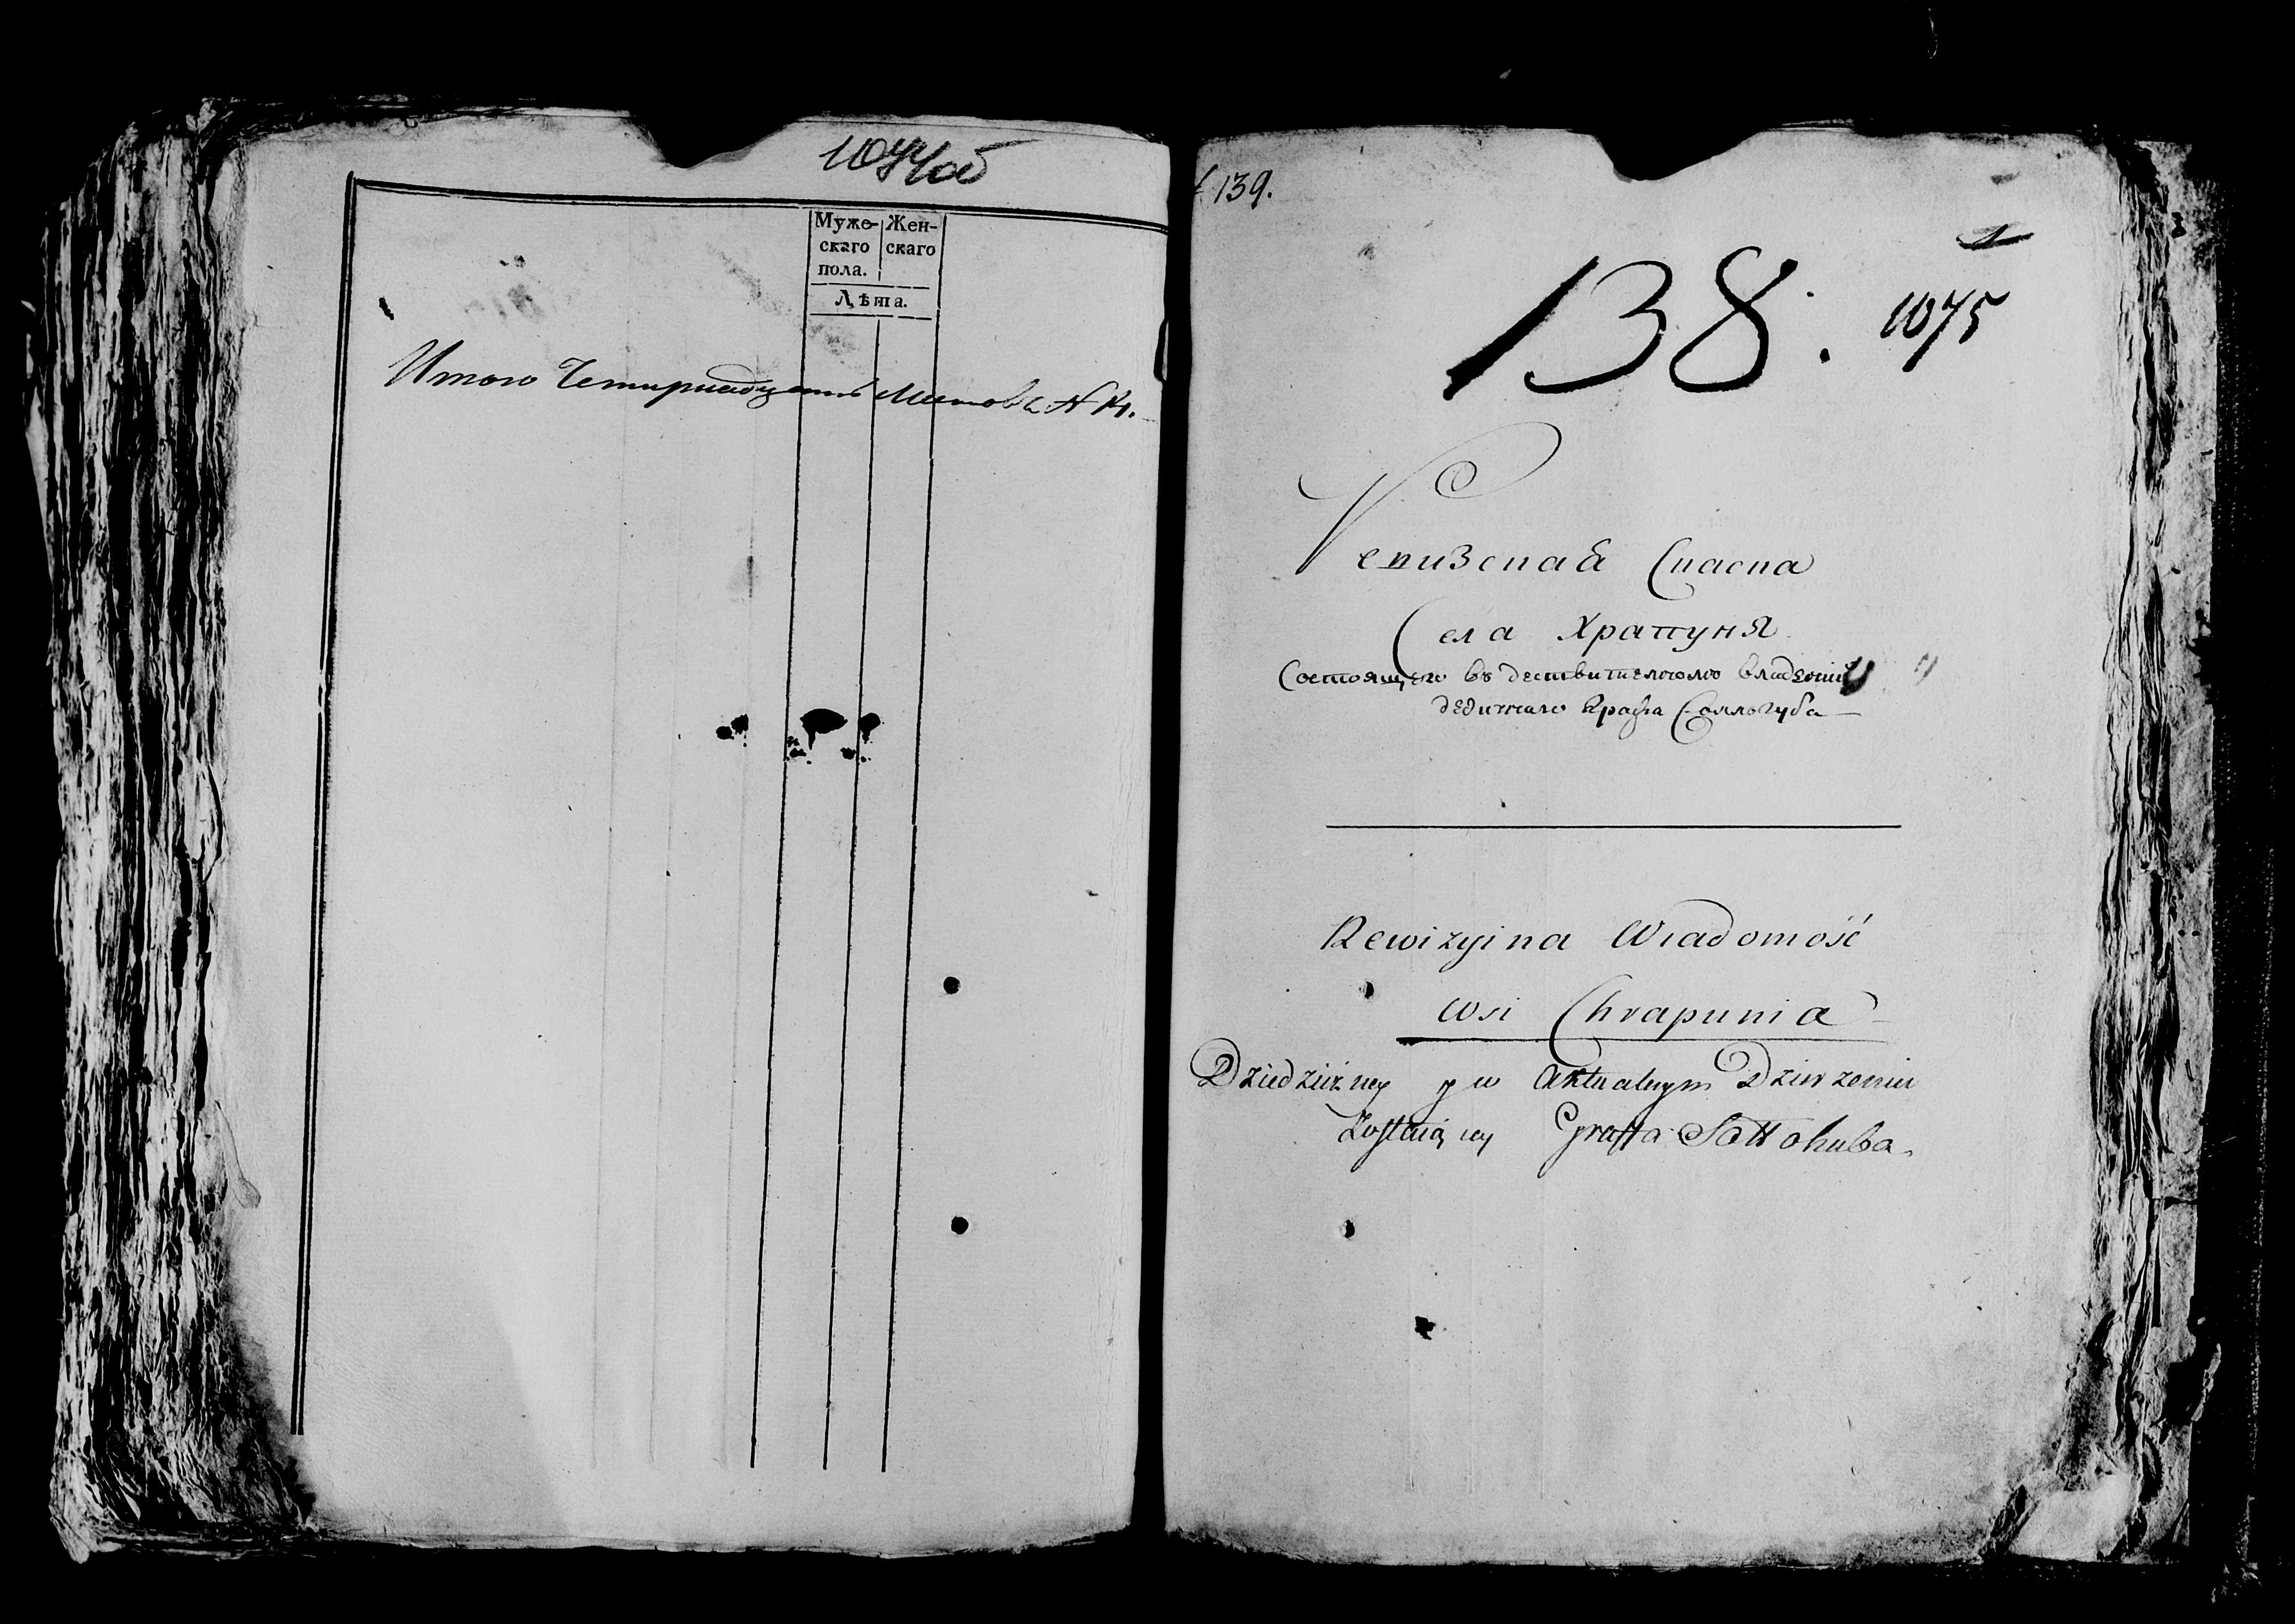 1074об
Муже- Жен-
скаго скаго
пола.
Лѣта.
Итого Четирнадцать Листовъ N 14.
139.
1
138.
1075
Ревизская Сказка
Села Храпуня
Состоящего въ деиствителномъ владении
дедичнаго Графа Соллогуба
Rewizyina Wiadomość
wsi Chrapunia
Dziedziczney y w Aktualnym Dzierzeniu
Zostaiącey Graffa Sołłohuba.